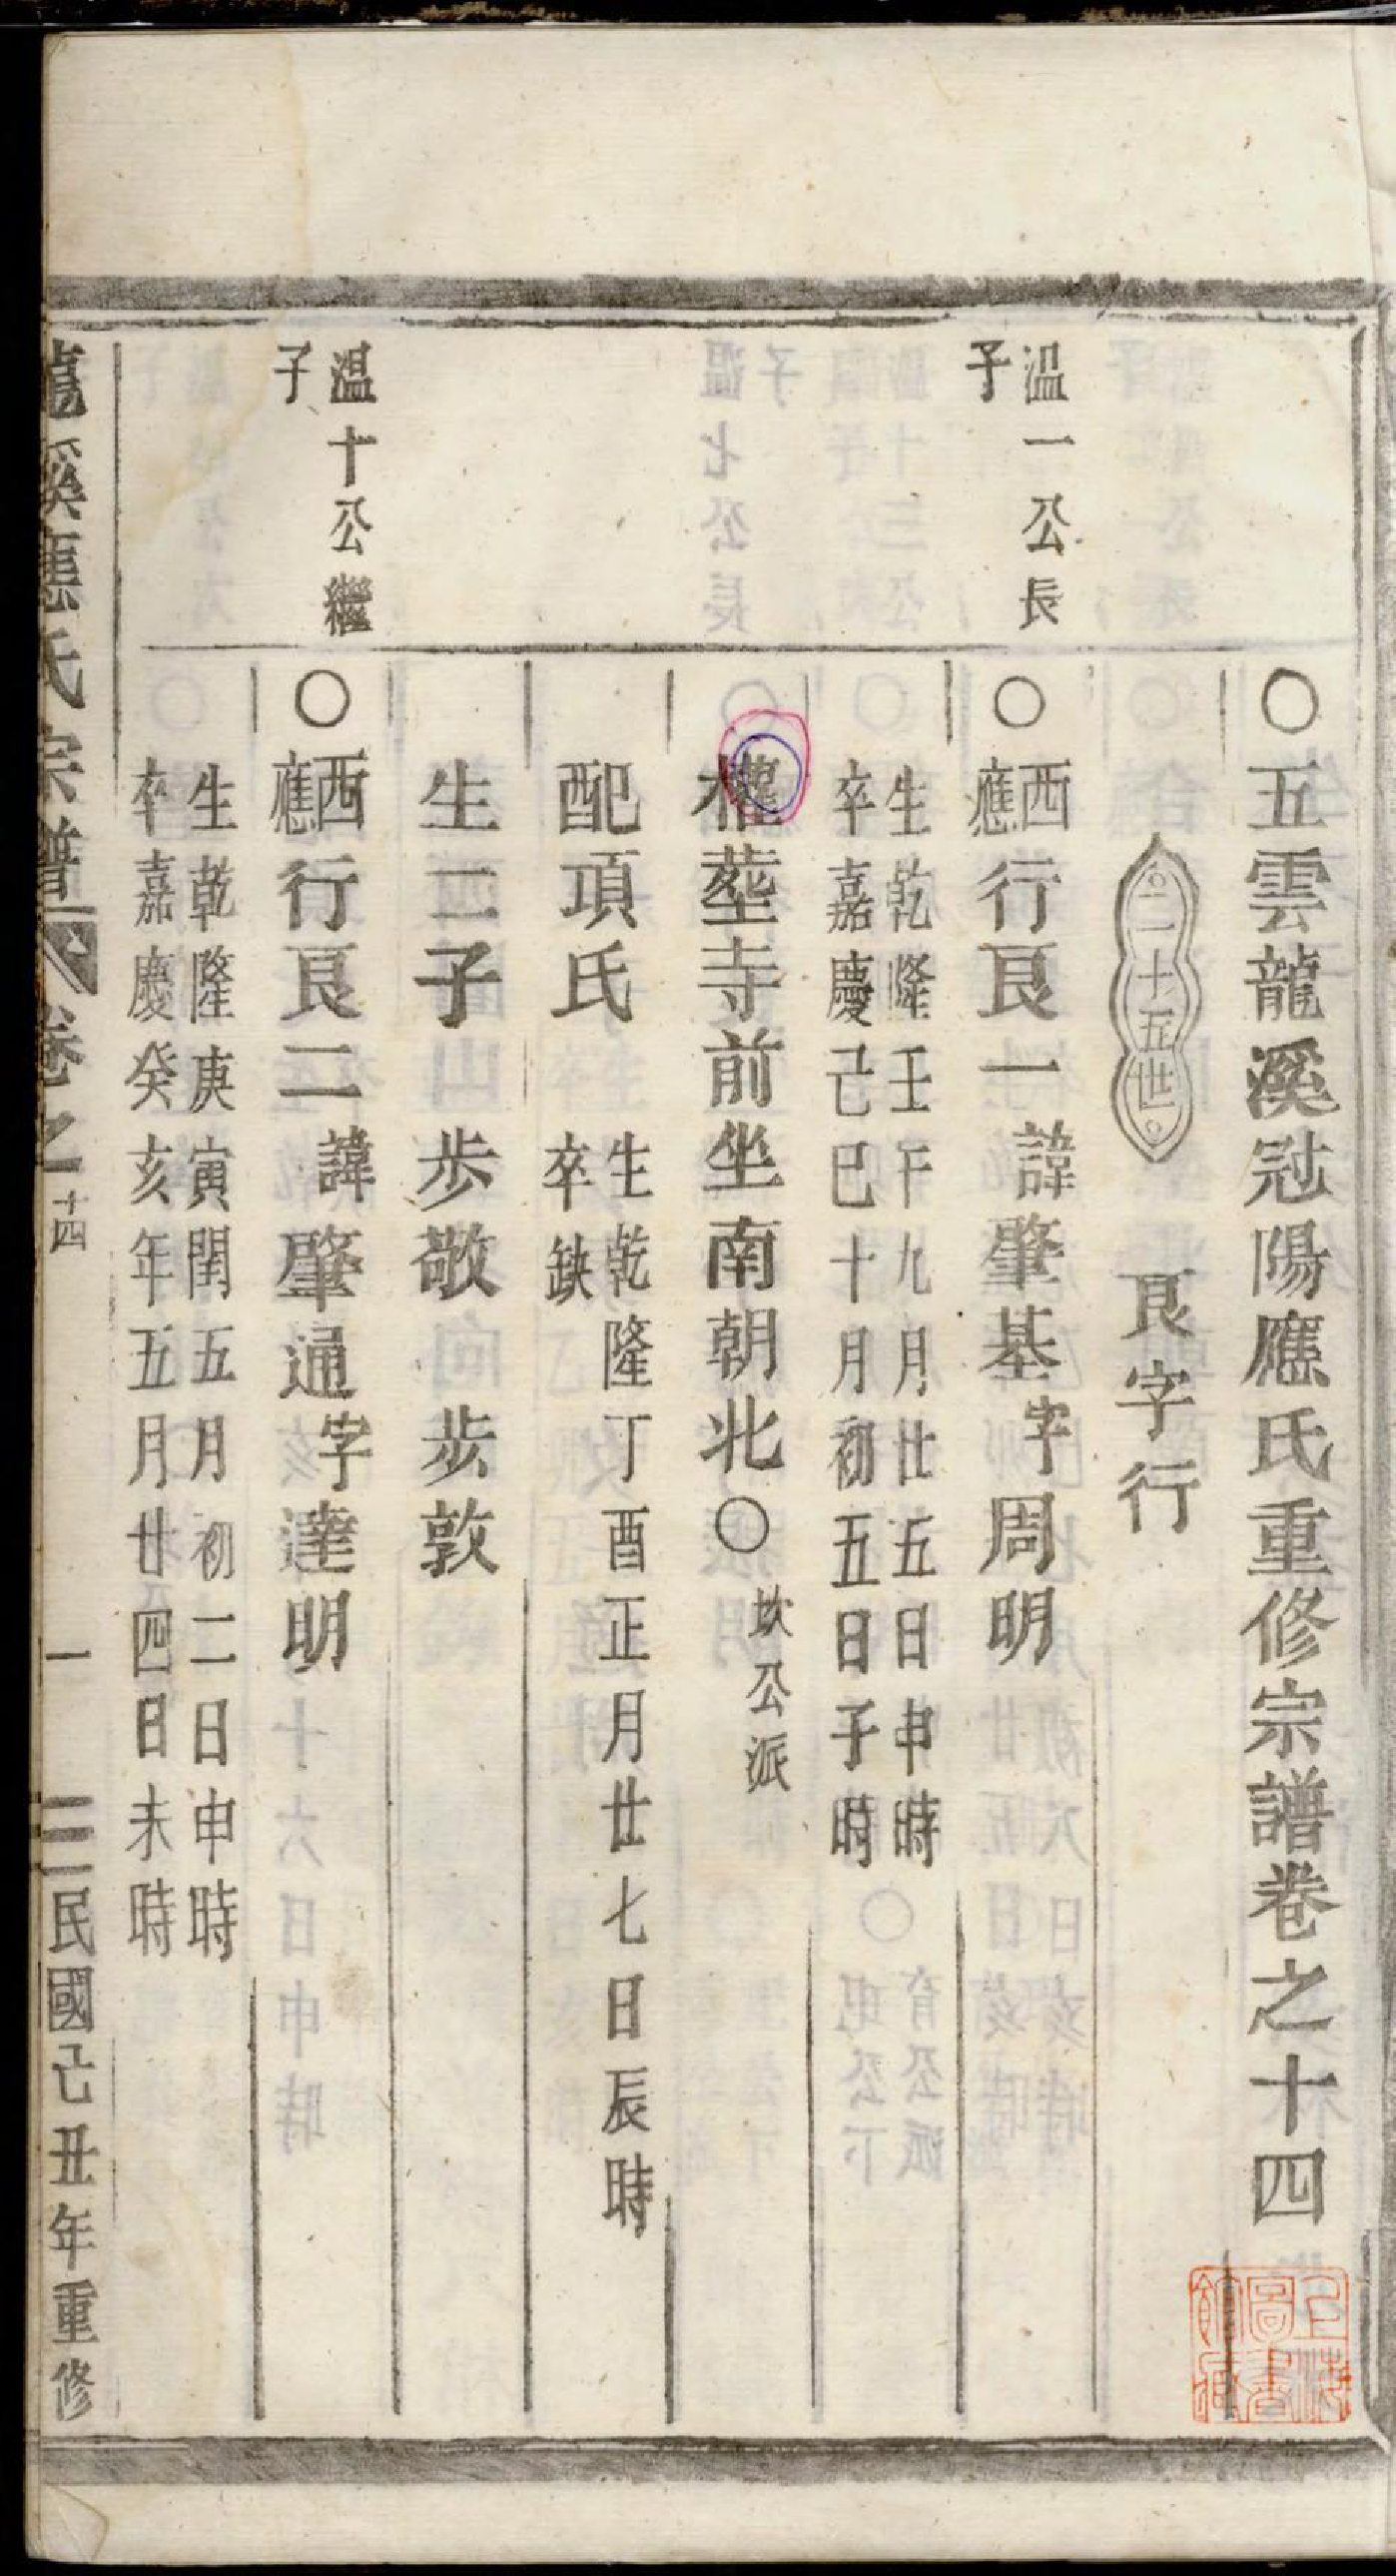 ○五雲龍溪冠陽應氏重修宗譜卷之十四
二十五世 艮字行
溫一公長
子
○西應行艮一諱肇基字周明
生乾隆壬午九月廿五日申時
卒嘉慶己巳十月初五日子時
權塟寺前坐南朝北○坎公派
配項氏 生乾隆丁酉正月廿七日辰時
卒缺
生二子 步敬 步敦
溫十公繼
子
○西應行艮二諱肇通字達明
生乾隆庚寅閏五月初二日申時
卒嘉慶癸亥年五月廿四日未時
龍溪應氏宗譜 卷之十四 一 民國己丑年重修
上海
圖書
館藏